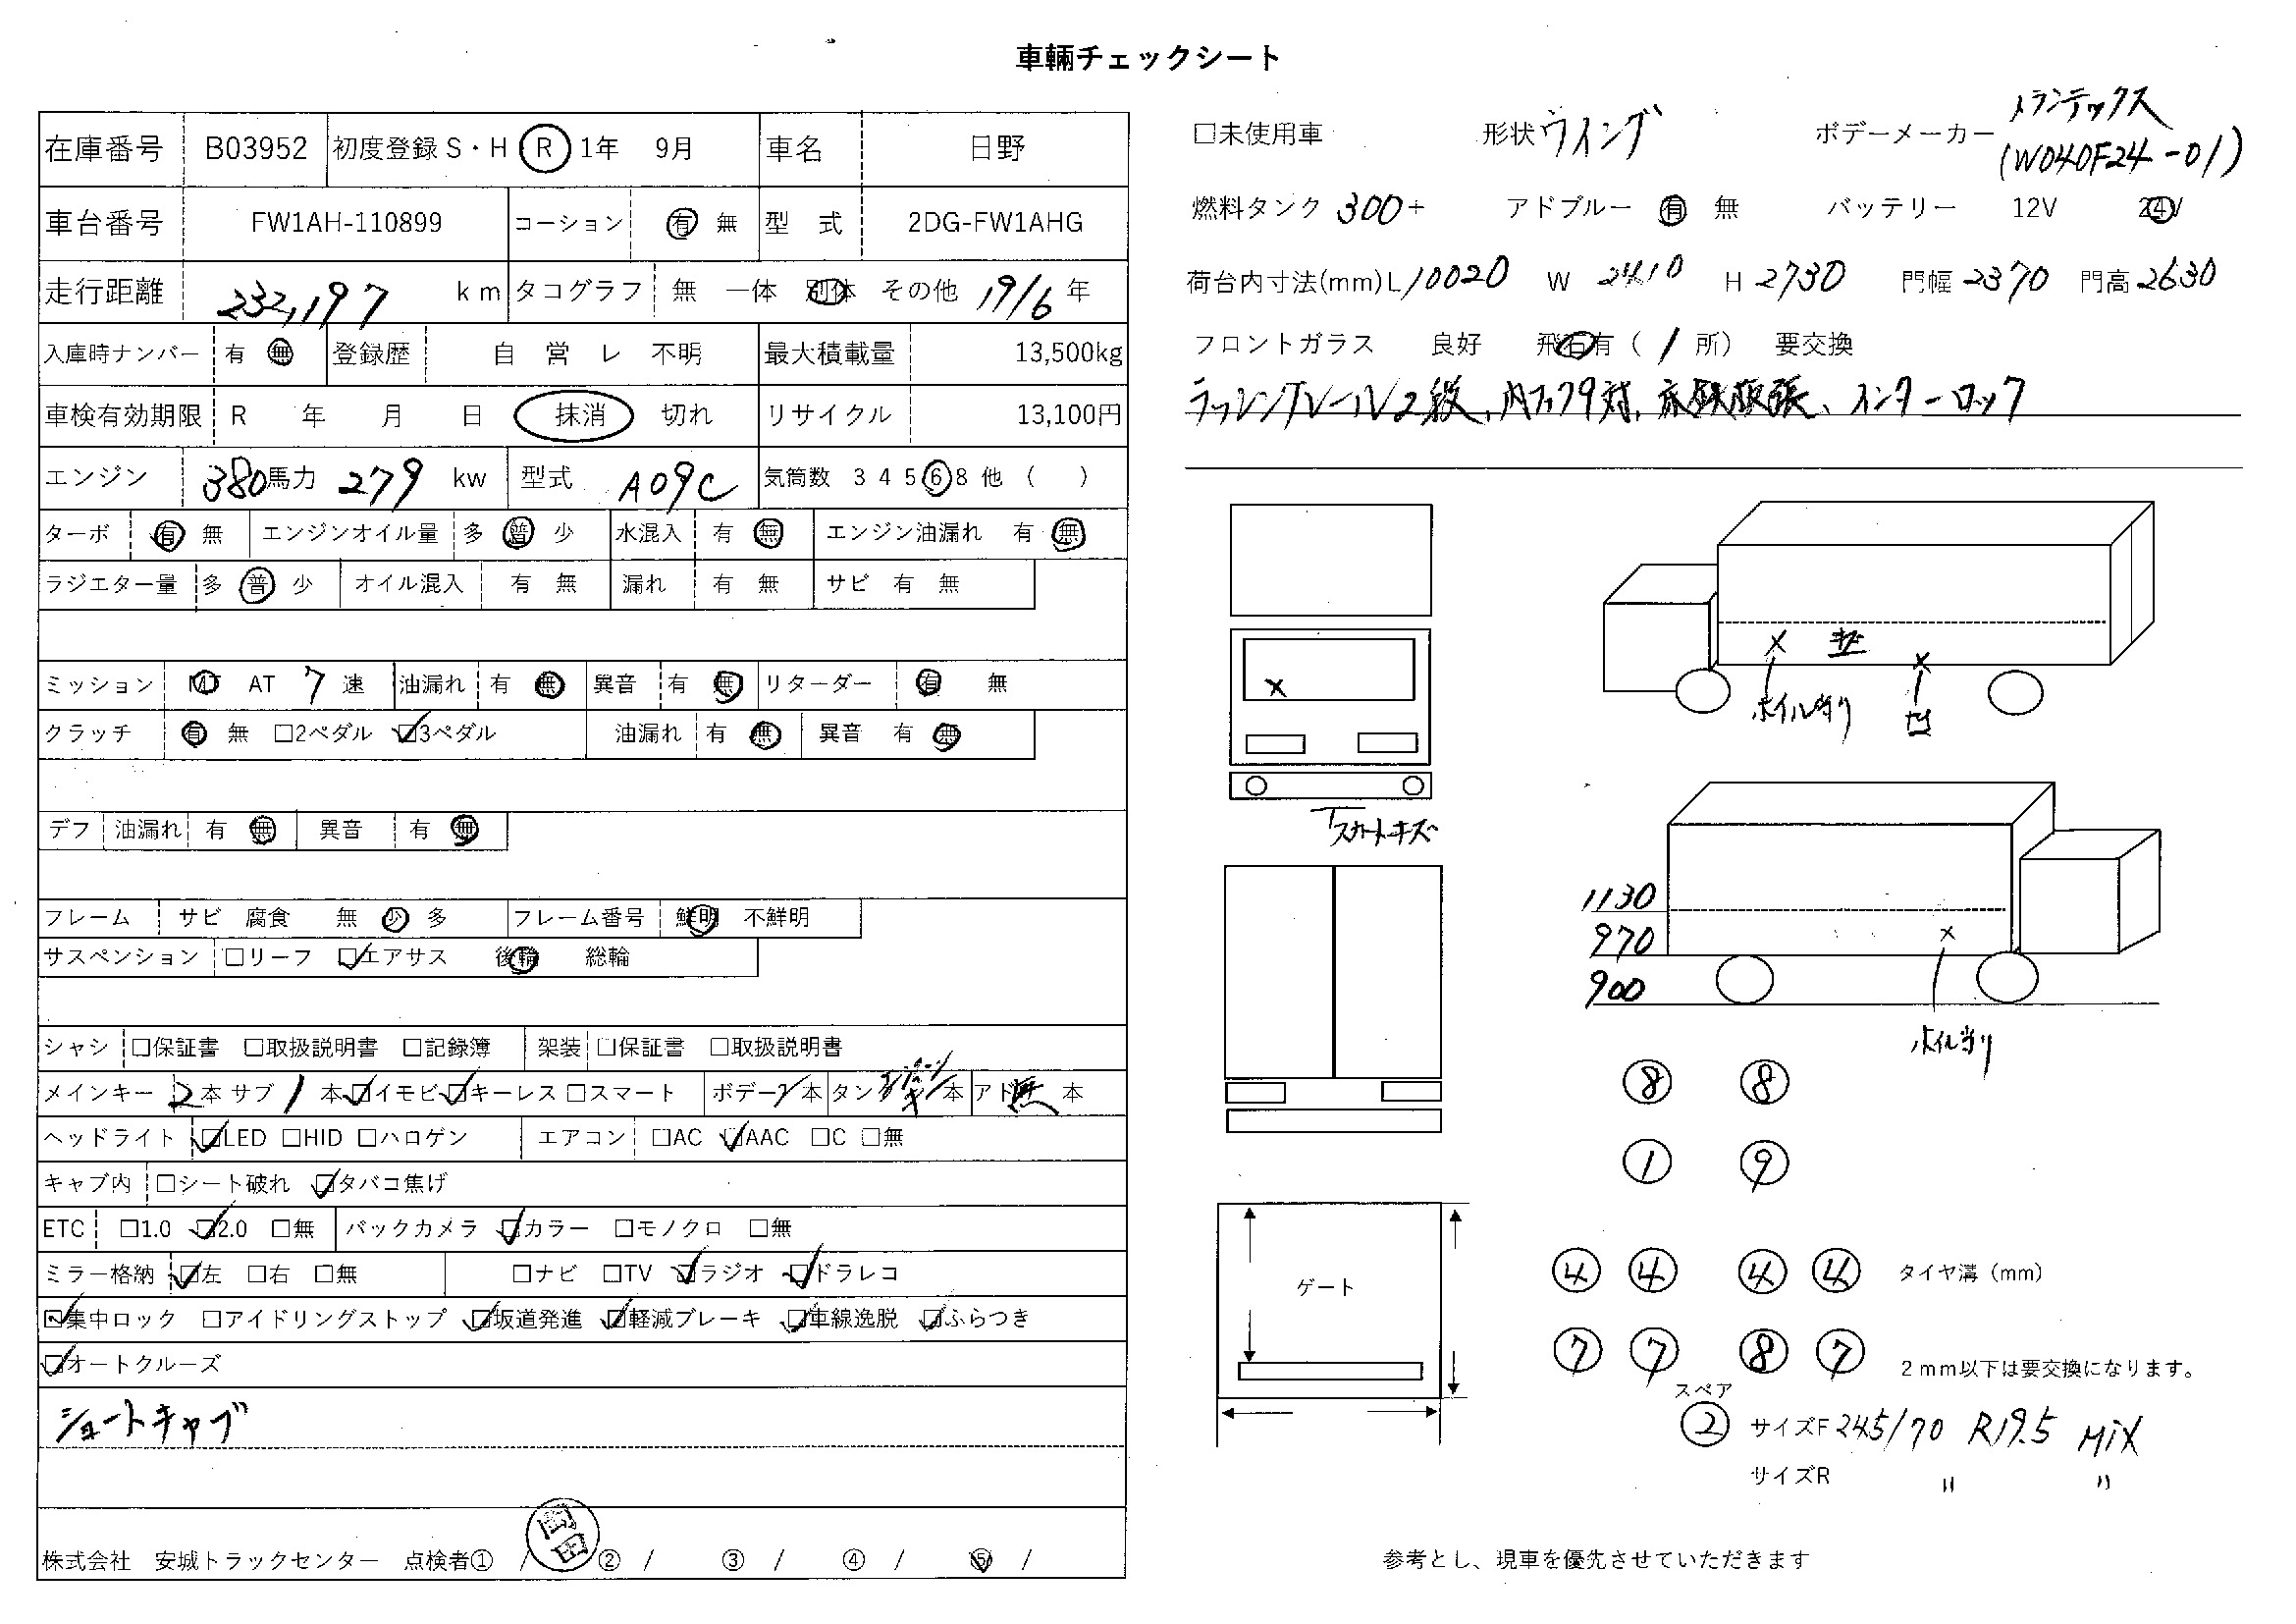 車輛チェックシート
在庫番号 B03952 初度登録 S・H R 1年 9月 車名 日野
車台番号 FW1AH-110899 コーション 有 無 型 式 2DG-FW1AHG
走行距離 232,197 km タコグラフ 無 一体 別体 その他 19/6 年
入庫時ナンバー 有 無 登録歴 自 営 レ 不明 最大積載量 13,500kg
車検有効期限 R 年 月 日 抹消 切れ リサイクル 13,100円
エンジン 380馬力 279 kw 型式 A09C 気筒数 3 4 5 6 8 他 ( )
ターボ 有 無 エンジンオイル量 多 普 少 水混入 有 無 エンジン油漏れ 有 無
ラジエター量 多 普 少 オイル混入 有 無 漏れ 有 無 サビ 有 無
ミッション MT AT 7 速 油漏れ 有 無 異音 有 無 リターダー 有 無
クラッチ 有 無 □2ペダル ☑3ペダル 油漏れ 有 無 異音 有 無
デフ 油漏れ 有 無 異音 有 無
フレーム サビ 腐食 無 少 多 フレーム番号 鮮明 不鮮明
サスペンション □リーフ ☑エアサス 後輪 総輪
シャシ □保証書 □取扱説明書 □記録簿 架装 □保証書 □取扱説明書
メインキー 2本 サブ 1 本 ☑イモビ ☑キーレス □スマート ボデー 本 タン 本 アド 無 本
ヘッドライト ☑LED □HID □ハロゲン エアコン □AC ☑AAC □C □無
キャブ内 □シート破れ ☑タバコ焦げ
ETC □1.0 ☑2.0 □無 バックカメラ ☑カラー □モノクロ □無
ミラー格納 ☑左 □右 □無 □ナビ □TV ☑ラジオ ☑ドラレコ
☑集中ロック □アイドリングストップ ☑坂道発進 ☑軽減ブレーキ ☑車線逸脱 ☑ふらつき
☑オートクルーズ
ショートキャブ
株式会社 安城トラックセンター 点検者① / ② / ③ / ④ / ⑤ /
岡田
□未使用車 形状 ウイング ボデーメーカー トランテックス
(W040F24-01)
燃料タンク 300+ アドブルー 有 無 バッテリー 12V 24V
荷台内寸法(mm) L 10020 W 2410 H 2730 門幅 2370 門高 2630
フロントガラス 良好 飛石有 ( 1 所) 要交換
ラッシングレール2段、内フック9対、床鉄板張、インターロック
×
× キズ ×
ボイル当り 凹
スカートキズ
1130
970 ×
900
ボイル当り
⑧ ⑧
① ⑨
ゲート
④ ④ ④ ④ タイヤ溝 (mm)
⑦ ⑦ ⑧ ⑦ 2mm以下は要交換になります。
スペア
② サイズF 245/70 R19.5 MiX
サイズR 〃 〃
参考とし、現車を優先させていただきます